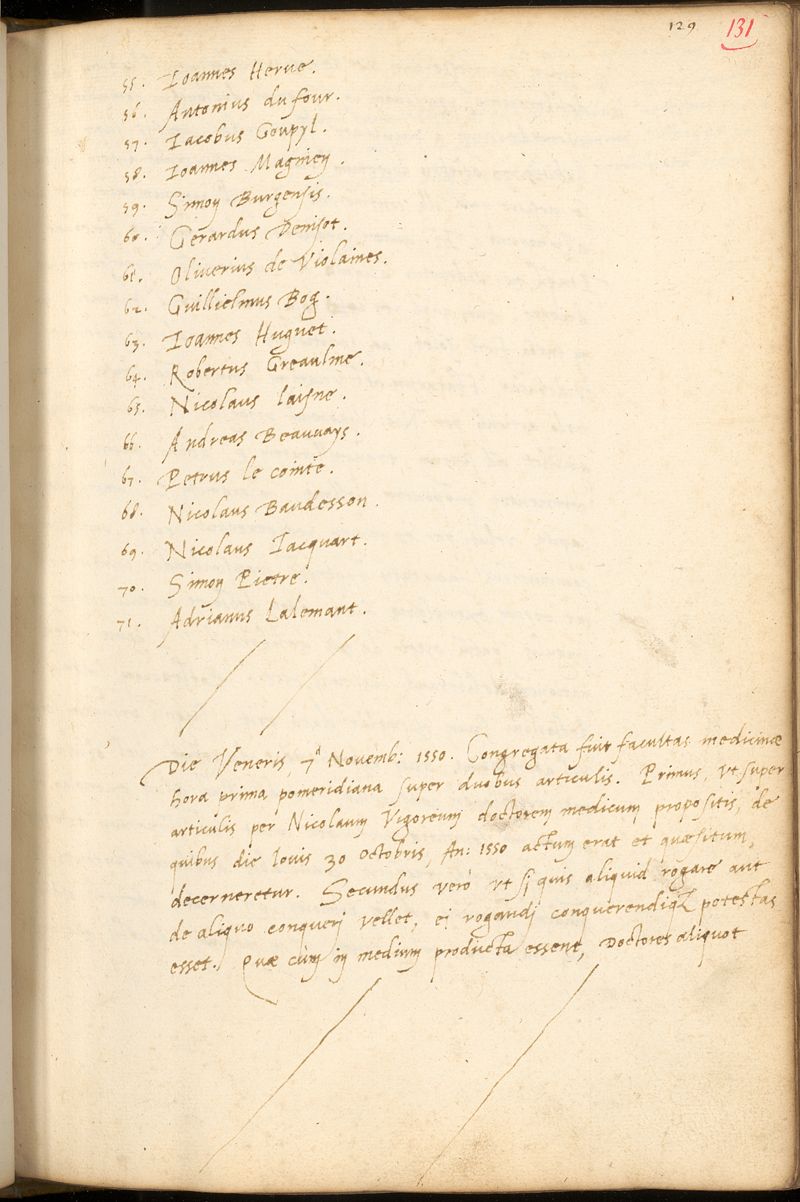 129 131
55. Ioannes Herue.
56. Antonius du four.
57. Iacobus Goupyl.
58. Ioannes Magnien.
59. Simon Burgensis.
60. Gerardus Denisot.
61. Oliuerius de Violaines.
62. Guillielmus Bog.
63. Ioannes Huguet.
64. Robertus Greaulme.
65. Nicolaus laisne.
66. Andreas Beauuays.
67. Petrus le cointe.
68. Nicolaus Baudesson.
69. Nicolaus Iacquart.
70. Simon Pietre.
71. Adrianus Lalemant.
Die Veneris, 7a Novemb: 1550. Congregata fuit facultas medicinæ
hora prima pomeridiana super duobus articulis. Primus, vt super
articulis per Nicolaum Vigoreum doctorem medicum propositis, de
quibus die Iouis 30 Octobris, An: 1550 actum erat et quæsitum,
decerneretur. Secundus verò vt si quis aliquid rogare aut
de aliquo conqueri vellet, ei rogandi conquerendiq potestas
esset. Quæ cùm in medium producta essent, Doctores aliquot